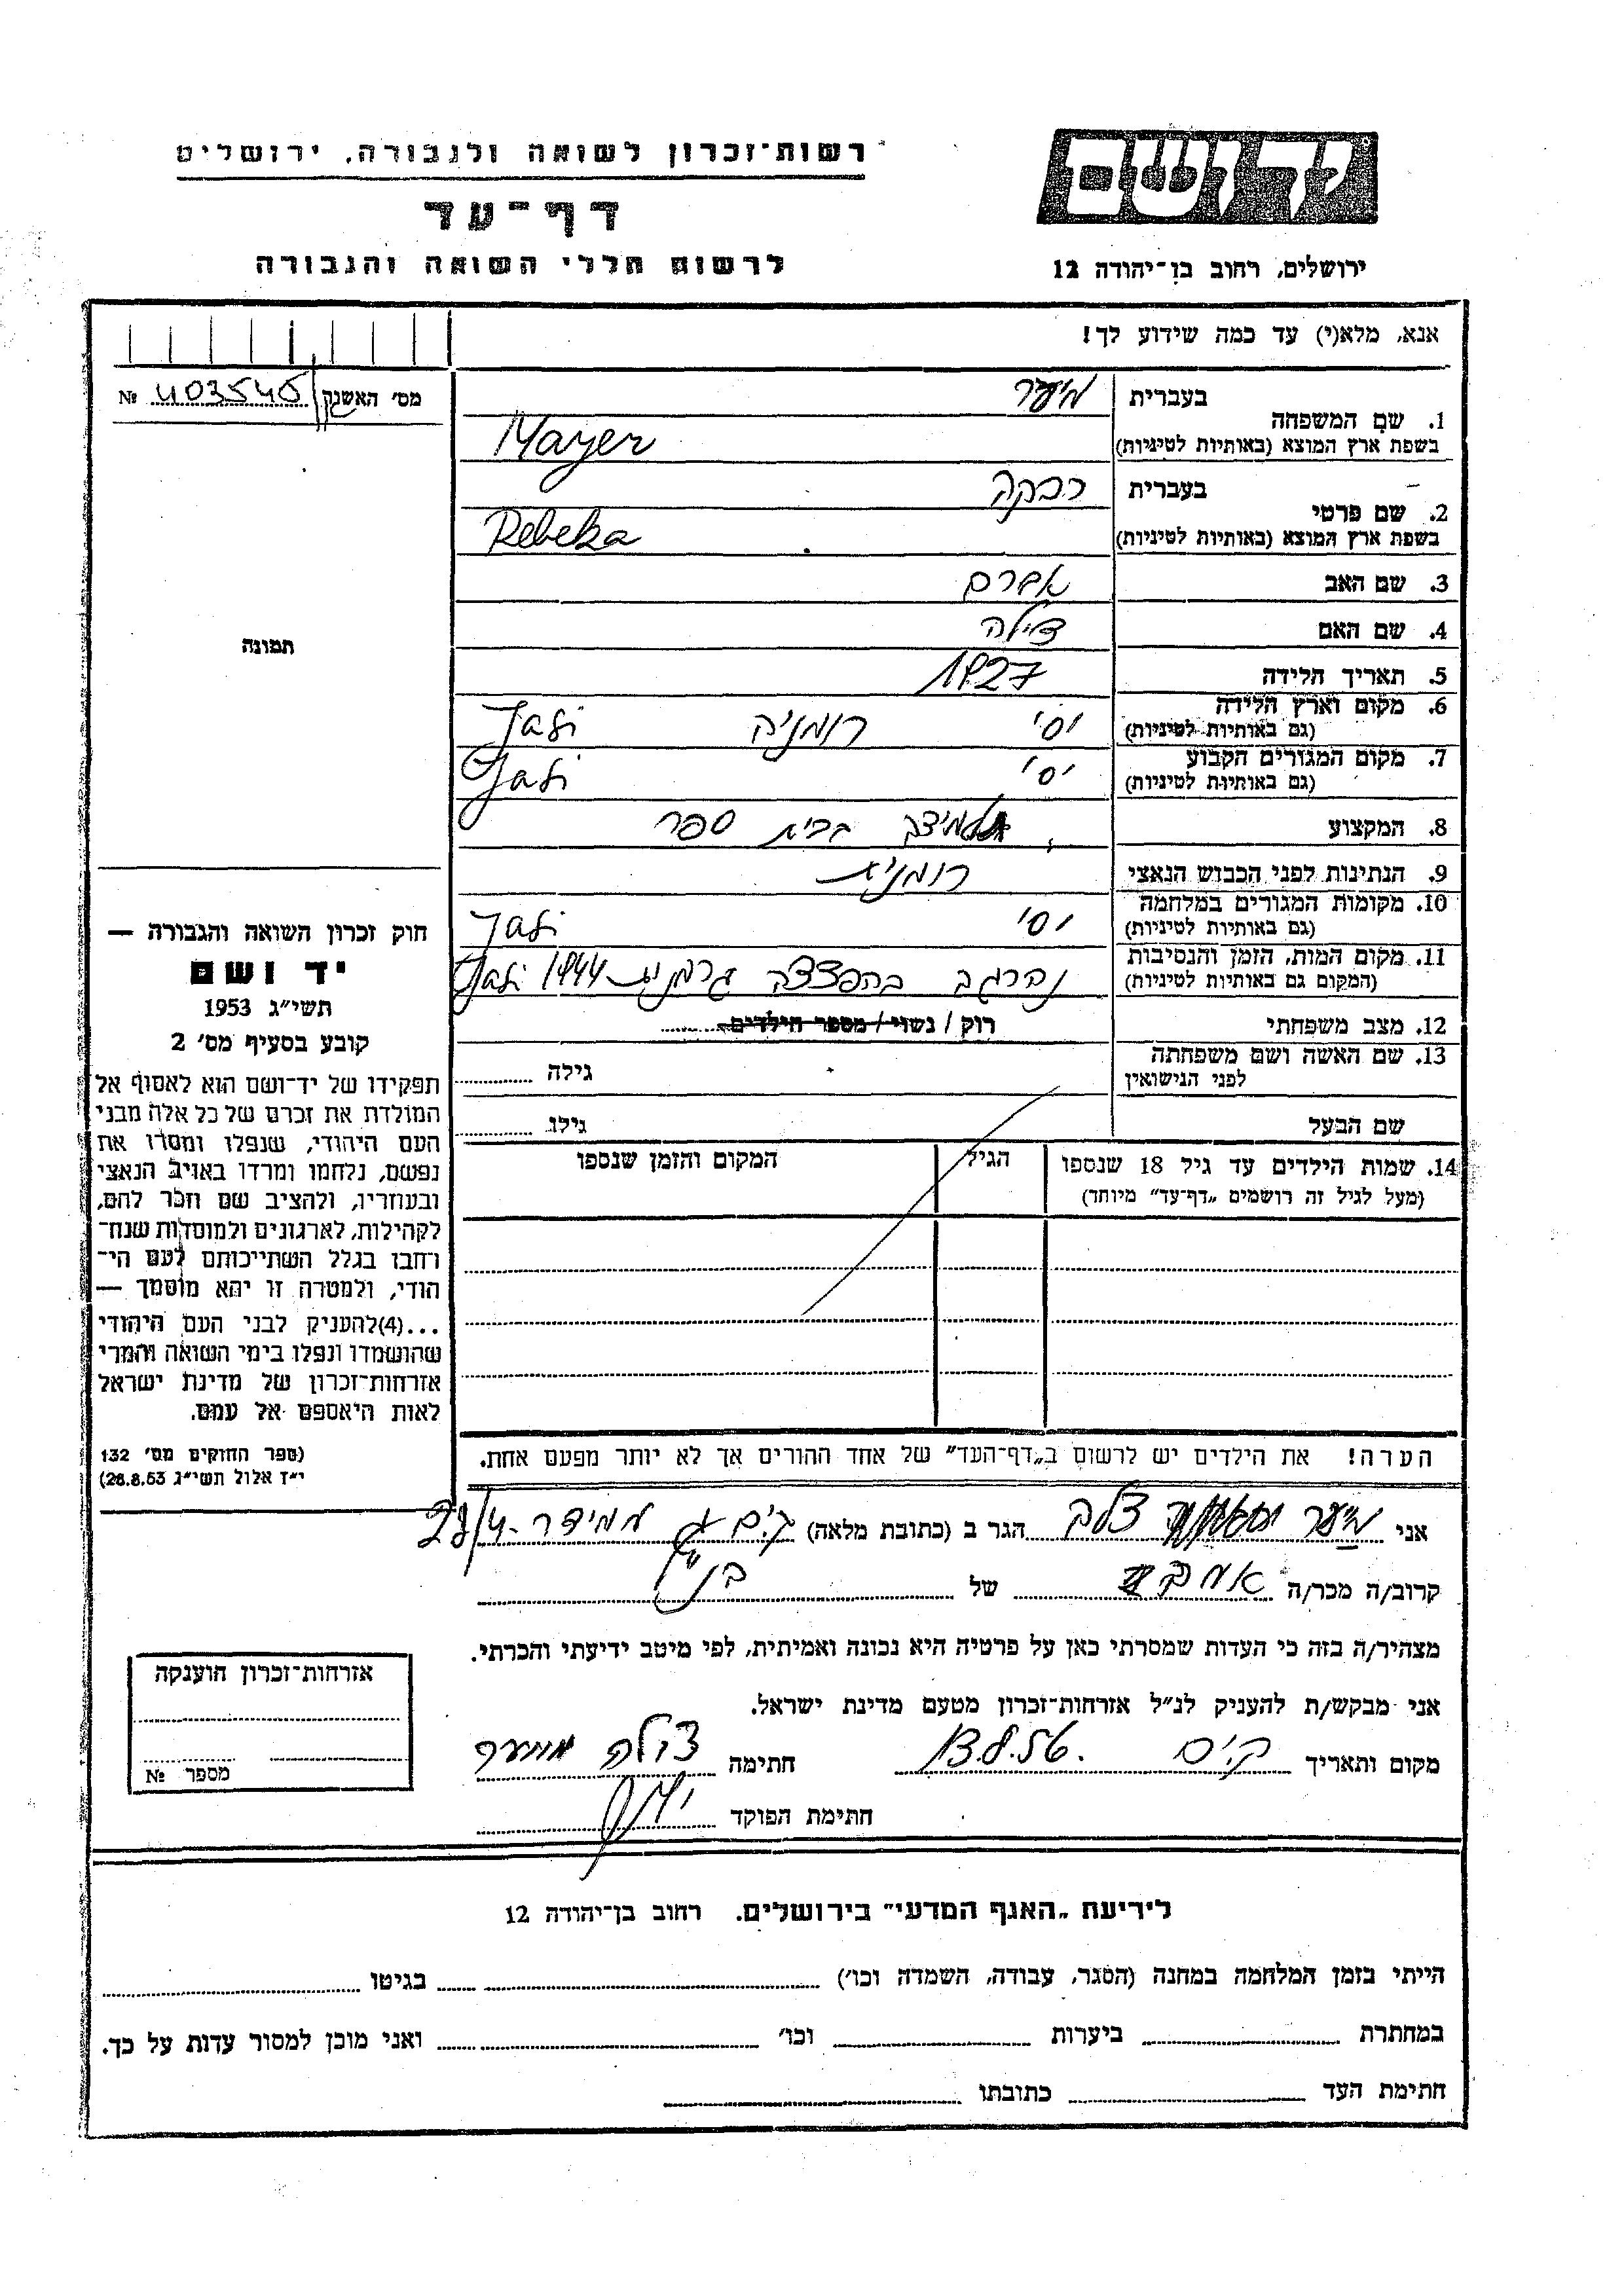 רשות־זכרון לשואה ולגבורה, ירושלים
יד ושם
דף־עד
לרשום חללי השואה והגבורה
ירושלים, רחוב בן־יהודה 12
אנא, מלא(י) עד כמה שידוע לך!
מס׳ האשנק 403545 №
תמונה
1. שם המשפחה
בעברית מיער
בשפת ארץ המוצא (באותיות לטיניות) Mayer
2. שם פרטי
בעברית רבקה
בשפת ארץ המוצא (באותיות לטיניות) Rebeka
3. שם האב אברם
4. שם האם צילה
5. תאריך הלידה 1927
6. מקום וארץ הלידה יסי רומניה Jasi
(גם באותיות לטיניות)
7. מקום המגורים הקבוע יסי Jasi
(גם באותיות לטיניות)
8. המקצוע בבית ספר
9. הנתינות לפני הכבוש הנאצי רומנית
10. מקומות המגורים במלחמה יסי Jasi
(גם באותיות לטיניות)
11. מקום המות, הזמן והנסיבות בהפצצה גרמנית 1944 Jasi
(המקום גם באותיות לטיניות)
12. מצב משפחתי רוק / נשוי / מספר הילדים
13. שם האשה ושם משפחתה גילה
לפני הנישואין
שם הבעל גילו
14. שמות הילדים עד גיל 18 שנספו הגיל המקום והזמן שנספו
(מעל לגיל זה רושמים „דף־עד” מיוחד)
חוק זכרון השואה והגבורה —
יד ושם
תשי״ג 1953
קובע בסעיף מס׳ 2
תפקידו של יד־ושם הוא לאסוף אל
המולדת את זכרם של כל אלה מבני
העם היהודי, שנפלו ומסרו את
נפשם, נלחמו ומרדו באויב הנאצי
ובעוזריו, ולהציב שם וזכר להם,
לקהילות, לארגונים ולמוסדות שנח־
רחבו בגלל השתייכותם לעם הי־
הודי, ולמטרה זו יהא מוסמך —
...(4)להעניק לבני העם היהודי
שהושמדו ונפלו בימי השואה והמרי
אזרחות־זכרון של מדינת ישראל
לאות היאספם אל עמם.
(ספר החוקים מס׳ 132
י״ז אלול תשי״ג 28.8.53)
הערה! את הילדים יש לרשום ב„דף־העד” של אחד ההורים אך לא יותר מפעם אחת.
אני מיער הגר ב (כתובת מלאה)
קרוב/ה מכר/ה של
מצהיר/ה בזה כי העדות שמסרתי כאן על פרטיה היא נכונה ואמיתית, לפי מיטב ידיעתי והכרתי.
אני מבקש/ת להעניק לנ״ל אזרחות־זכרון מטעם מדינת ישראל.
מקום ותאריך 13.8.56. חתימה צילה מיער
חתימת הפוקד
אזרחות־זכרון הוענקה
מספר №
לידיעת „האגף המדעי” בירושלים. רחוב בן־יהודה 12
הייתי בזמן המלחמה במחנה (הסגר, עבודה, השמדה וכו׳) בגיטו
במחתרת ביערות וכו׳ ואני מוכן למסור עדות על כך.
חתימת העד כתובתו